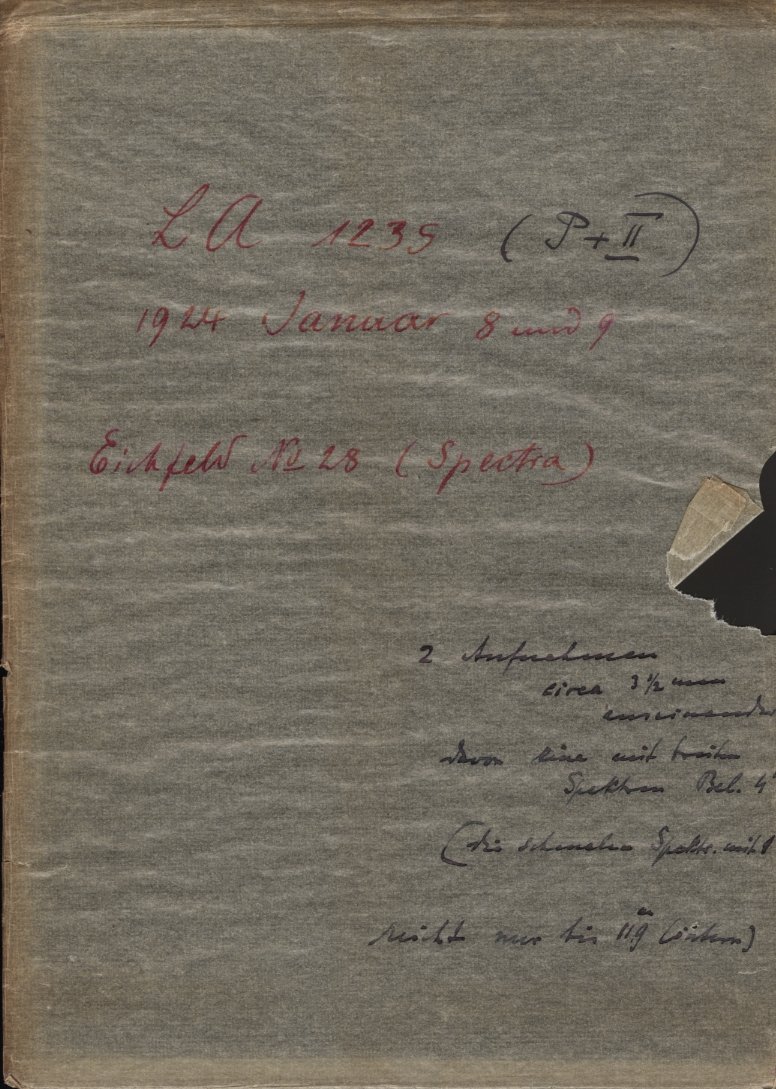 LA 1235 (P+II)
1924 Januar 8 und 9
Eichfeld № 28 (Spectra)
2 Aufnahmen
circa 3 ½ mm
auseinander
davon eine mit breiten
Spektren Bel. 4
(die schmalen Spektr. mit
reicht nur bis 11